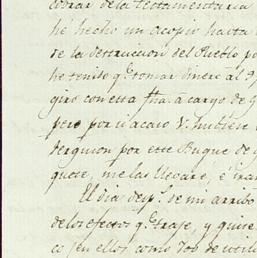 cobrar de la testamentaria
hé hecho un acopio hasta
de la destruccion del Pueblo po
he tenido q.e tomar dinero al 9
giro con esta fha. á cargo de
pero por si acaso V. hubiere
por este Buque de
quote, me las llevaré, é
El dia desp.s de mi arribo
de los efectos q.e traje, y quise
co en ellos como 700 de utili